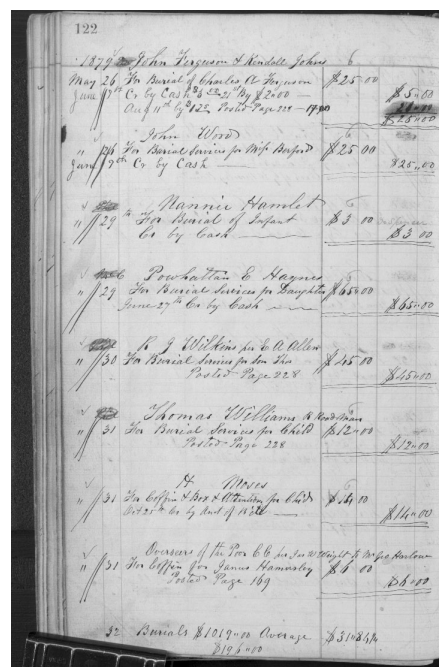 122
1879 John Ferguson & Kendall Johns 6
May 26 For Burial of Charles A Ferguson $25 00
June 7th Cr by Cash $5 00 21st By $2 00 — $5 00
Aug 11th by $1 25 Posted Page 228 — 17 00
$25 00
John Wood 6
" 26 For Burial Services for Miss $25 00
June 7th Cr by Cash $25 00
Nannie Hamlet 6
" 29 th For Burial of Infant $3 00
Cr by Cash $3 00
Powhattan E Haynes 6
" 29 For Burial Services for Daughter $65 00
June 27th Cr by Cash $65 00
R J Wilkins per C A Allen
" 30 For Burial Services for Son $45 00
Posted Page 228 $45 00
Thomas Williams R Road Man
" 31 For Burial Services for Child $12 00
Posted Page 228 $12 00
H Moses 6
" 31 For Coffin & Box & Attention for Child $14 00
Oct 25th Cr by $14 00
Overseers of the Poor C C per Jas W Wright to Mr Geo Harlow
" 31 For Coffin for James Hamersley $6 00
Posted Page 169 $6 00
32 Burials $1019 00 Average $31 84
$196 00